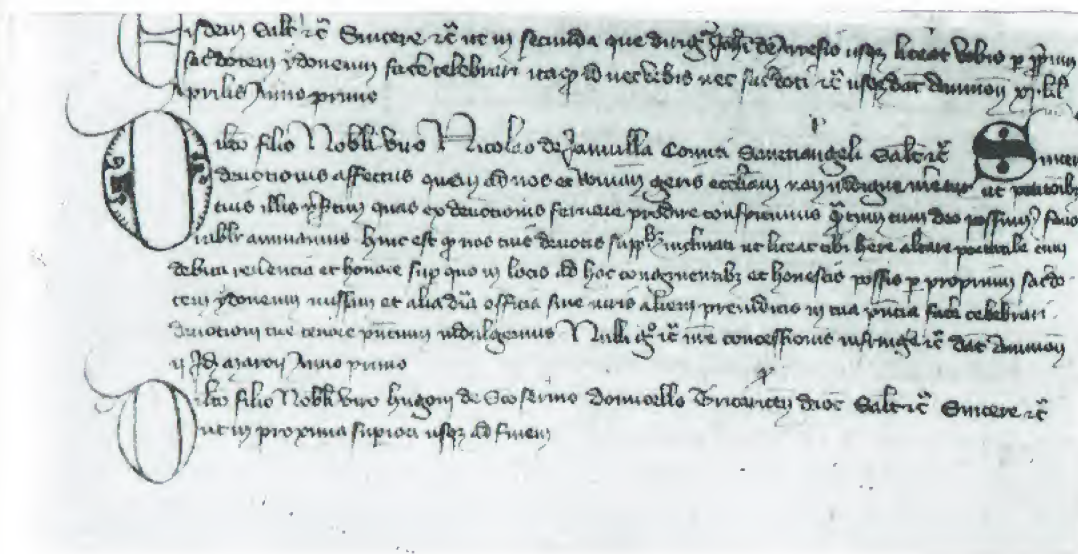 isdem Salt etc Sincere etc ut in secunda que dirigitur Johi de Arresio usque liceat vobis per proprium
sacdotem ydoneum face celebrari ita quod id nec vobis nec sacdoti etc usque dat Auinion xj kl
Aprilis Anno primo
ilto filio Nobili viro Nicolao de Janvilla Comiti Sanctiangeli Salt etc Sincere
deuotionis affectus quem ad nos et Romanam geris ecctiam non indigne meretur ut petitionibz
tuis illis presertim quas ex deuotionis feruore prodire conspicimus quantum cum deo possumus fauo
rabilr annuamus Hinc est quod nos tuis deuotis supplicbz inclinati ut liceat tibi here altare portatile cum
debita reuencia et honore sup quo in locis ad hoc congruentibz et honestis possis per proprium sacdo
tem ydoneum missam et alia diuina officia sine iuris alieni preiudicio in tua pncia face celebrari
deuotioni tue tenore pntium indulgemus Nulli igo etc nre concessionis infringe etc dat Auinion
ij Id marcij Anno primo
ilto filio Nobili viro Hugoni de Domicello Tricaricen dioc Salt etc Sincere etc
ut in proxima supiori usque ad finem